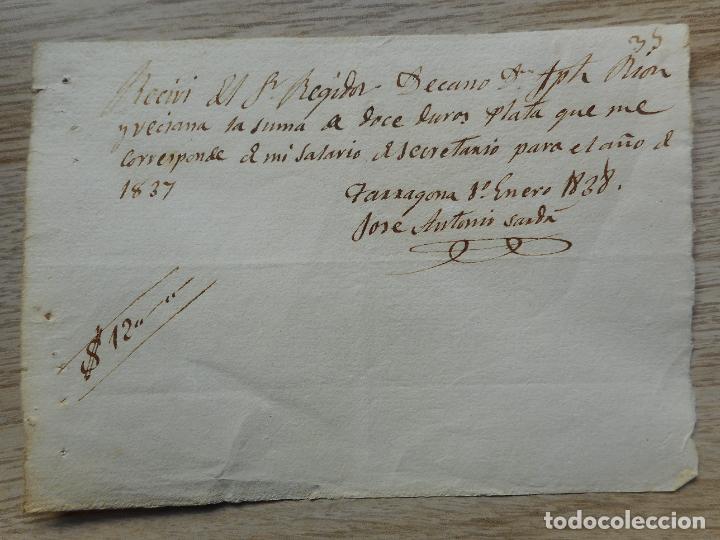 35
Recivi del Sr. Regidor Decano Dn. Jph Rion
y veciana la suma de doce duros plata que me
corresponde de mi salario de secretario para el año de
1837
Tarragona 1º. Enero 1838.
Jose Antonio Sardá
$ 12"
todocoleccion
todocoleccion.net